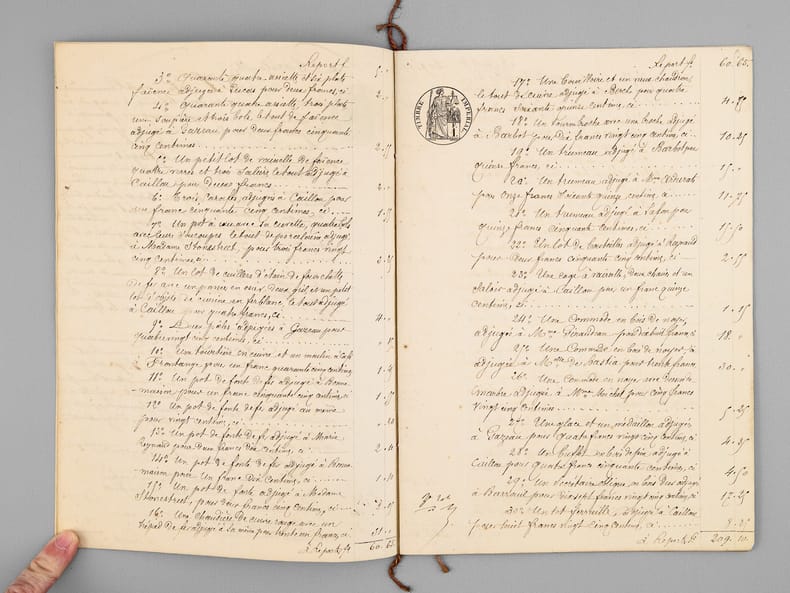 Report f. 5 "
3° Quarante quatre assiette et six plats
faïence adjugés à Ducos pour deux francs, ci 2 "
4° Quarante quatre assiette, trois plats
une soupière et trois bols, le tout de faïence
adjugé à Gazeau pour deux francs cinquante
cinq centimes 2.55
Un petit lot de vaisselle de faïence,
quatre verres et trois salière le tout adjugé à
Caillou pour deux francs 2 "
6° Trois carafes, adjugés à Caillou pour
un franc cinquante cinq centimes, ci 1.55
7° Un pot à eau avec sa cuvette, quatre
avec leurs soucoupes le tout de porcelaine adjugé
à Madame Stonestreet, pour trois francs vingt
cinq centimes, ci
8° Un lot de cuillers d'étain de fourchette
de fer
lot d'objets de cuisine en fer blanc, le tout adjugé
à Caillou pour quatre francs, ci 4 "
9° adjugés à Gazeau pour
quatre vingt centimes, ci
10° Une tourtière en cuivre et un moulin à café
pour un franc quarante cinq centimes
11° Un pot de fonte de fer adjugé à
pour un franc cinquante centimes, ci
12° Un pot de fonte de fer adjugé au même
pour vingt centimes, ci
13° Un pot de fonte de fer adjugé à Marie
Reynaud pour deux francs dix centimes, ci 2.10
14° Un pot de fonte de fer adjugé à
pour un franc dix centimes, ci 1.10
15° Un pot de fonte adjugé à Madame
Stonestreet, pour deux francs cinq centimes, ci
16° Une chaudière de cuivre rouge avec un
trépied de fer adjugé à la même pour trente un francs, ci 31 "
à Reporter f. 60.65
TIMBRE IMPÉRIAL
Report f. 60.65
17° Une bouilloire et un vieux chaudron
le tout de cuivre adjugé à Boche pour quatre
francs soixante quinze centimes, ci 4.75
18° Un tournebroche avec une broche adjugé
à Barbot pour dix francs vingt cinq centimes, ci 10.25
19° Un trumeau adjugé à Barbot pour
quinze francs, ci 15 "
20° Un trumeau adjugé à Mme
pour onze francs soixante quinze centimes, ci 11.75
21° Un trumeau adjugé à Lafon pour
quinze francs cinquante centimes, ci 15.50
22° Un lot de bouteilles adjugé à
pour deux francs cinquante cinq centimes, ci 2.55
23° Une cage à volaille, deux chaises et un
saloir adjugé à Caillou pour un franc quinze
centimes, ci 1.15
24° Une Commode en bois de noyer,
adjugée à Mme pour dix huit francs 18 "
25° Une Commode en bois de noyer,
adjugée à Melle de Bastia pour trente francs 30 "
26° Une Commode en noyer avec dessus
marbre adjugée à Mme pour cinq francs
vingt cinq centimes 5.25
27° Une glace et un médaillon adjugés
à Gazeau pour quatre francs vingt cinq centimes, ci
28° Un buffet en bois de pin adjugé à
Caillou pour quatre francs cinquante centimes, ci 4.50
29° Un secrétaire antique en bois dur adjugé
à pour dix sept francs vingt cinq centimes, ci 17.25
30° Un lot ferraille, adjugé à Caillou
pour huit francs vingt cinq centimes, ci 8.25
à Reporter f. 209.10